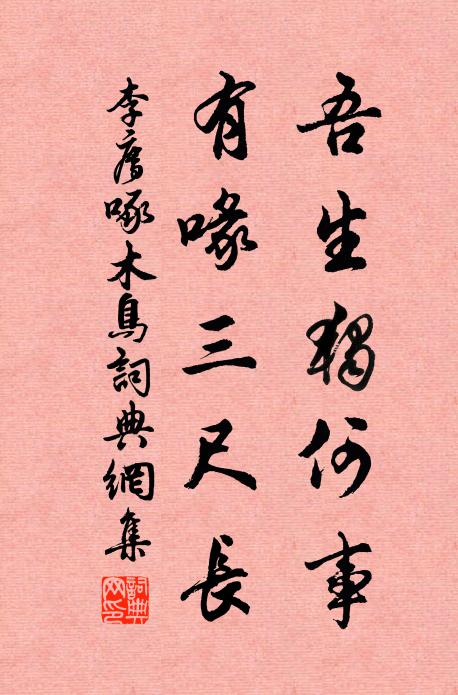 吾生獨何事
有喙三尺長
李廌啄木鳥詞典網集
詞典网印